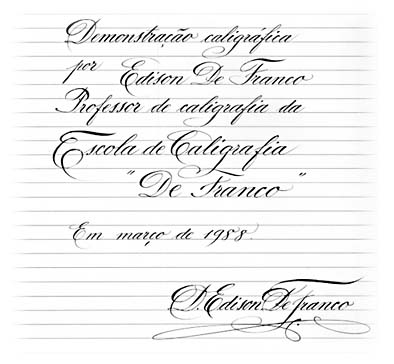 Demonstração caligráfica
por Edison De Franco
Professor de caligrafia da
Escola de Caligrafia
"De Franco"
Em março de 1988.
D. Edison De Franco